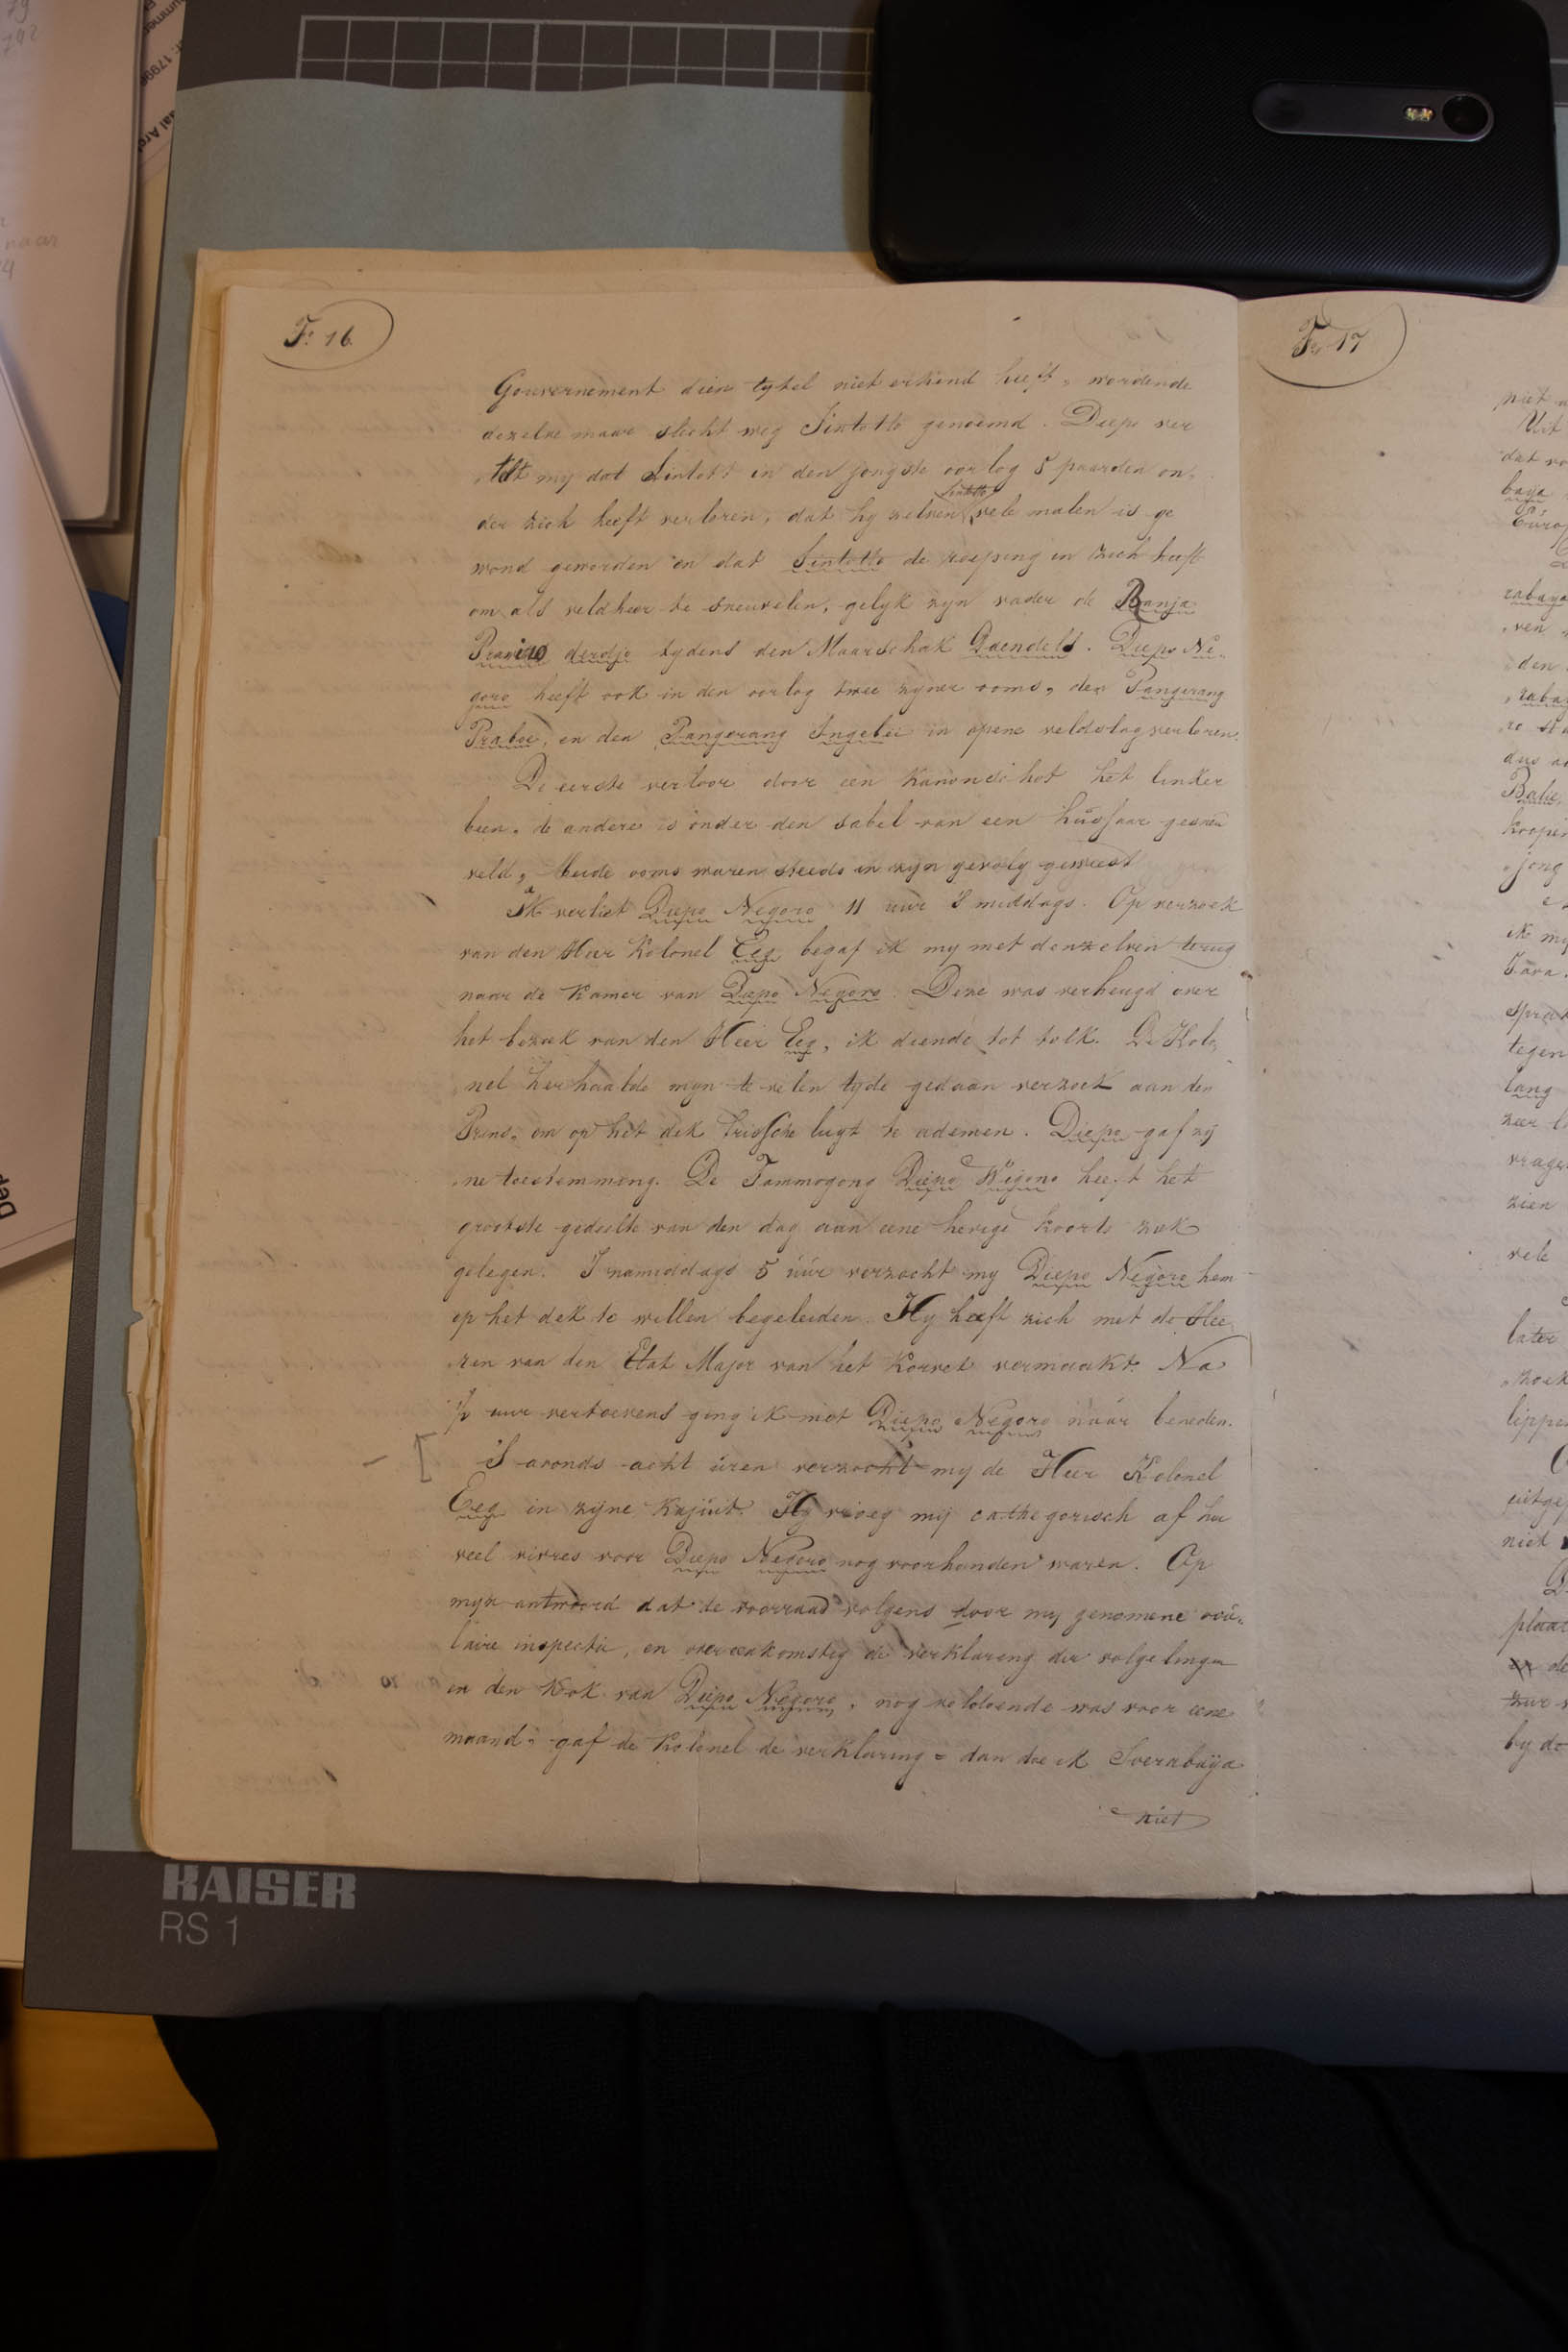 F: 16
Gouvernement dien tytel niet erkend heeft, wordende
dezelve maar slecht weg Sintotto genoemd. Diepo ver
telt my dat Sintott in den jongste oorlog 5 paarden on,
der zich heeft verloren, dat hy zelven Sintotto vele malen is ge
wond geworden en dat Sintotto de roeping in zich heeft
om als veldheer te sneuvelen, gelyk zyn vader de
tydens den Maarschak Daendels. Diepo Ne,
goro heeft ook in den oorlog twee zyner ooms, den Pangerang
Praboe, en den Pangerang Ingebei in opene veldslag verloren.
De eerste verloor door een kanonschot het linker
been, de andere is onder den sabel van een hussaar gesneu
veld, beide ooms waren steeds in zyn gevolg geweest
Ik verliet Diepo Negoro 11 uur 's middags. Op verzoek
van den Heer Kolonel Eeg begaf ik my met denzelven terug
naar de kamer van Diepo Negoro. Deze was verheugd over
het bezoek van den Heer Eeg, ik diende tot tolk. De Kolo,
nel herhaalde myn te velen tyde gedaan verzoek aan den
Prins, om op het dek frissche lugt te ademen. Diepo gaf zy
ne toestemming. De Tammogong Diepo Wigono heeft het
grootste gedeelte van den dag aan eene hevige koorts ziek
gelegen. S namiddags 5 uur verzocht my Diepo Negoro hem
op het dek te willen begeleiden. Hy heeft zich met de Hee,
ren van den Etat Major van het Korvet vermaakt. Na
½ uur vertoevens ging ik met Diepo Negoro naar beneden.
S avonds acht uren verzocht my de Heer Kolonel
Eeg in zyne Kajuit. Hy vroeg my cathegorisch af hoe
veel vivres voor Diepo Negoro nog voorhanden waren. Op
myn antwoord dat de voorraad volgens door my genomene ocu,
laire inspectie, en overeenkomstig de verklaring der volgelingen
en den kok van Diepo Negoro, nog voldoende was voor eene
maand, gaf de Kolonel de verklaring = dan doe ik Soerabaya
niet
F: 17
niet
Uit
baya
Euro
rabaya
den
Balie
koopen
jong
ik my
Java.
tegen
lang
zeer
zien
vele
later
niet
plaat
by de
KAISER
RS 1